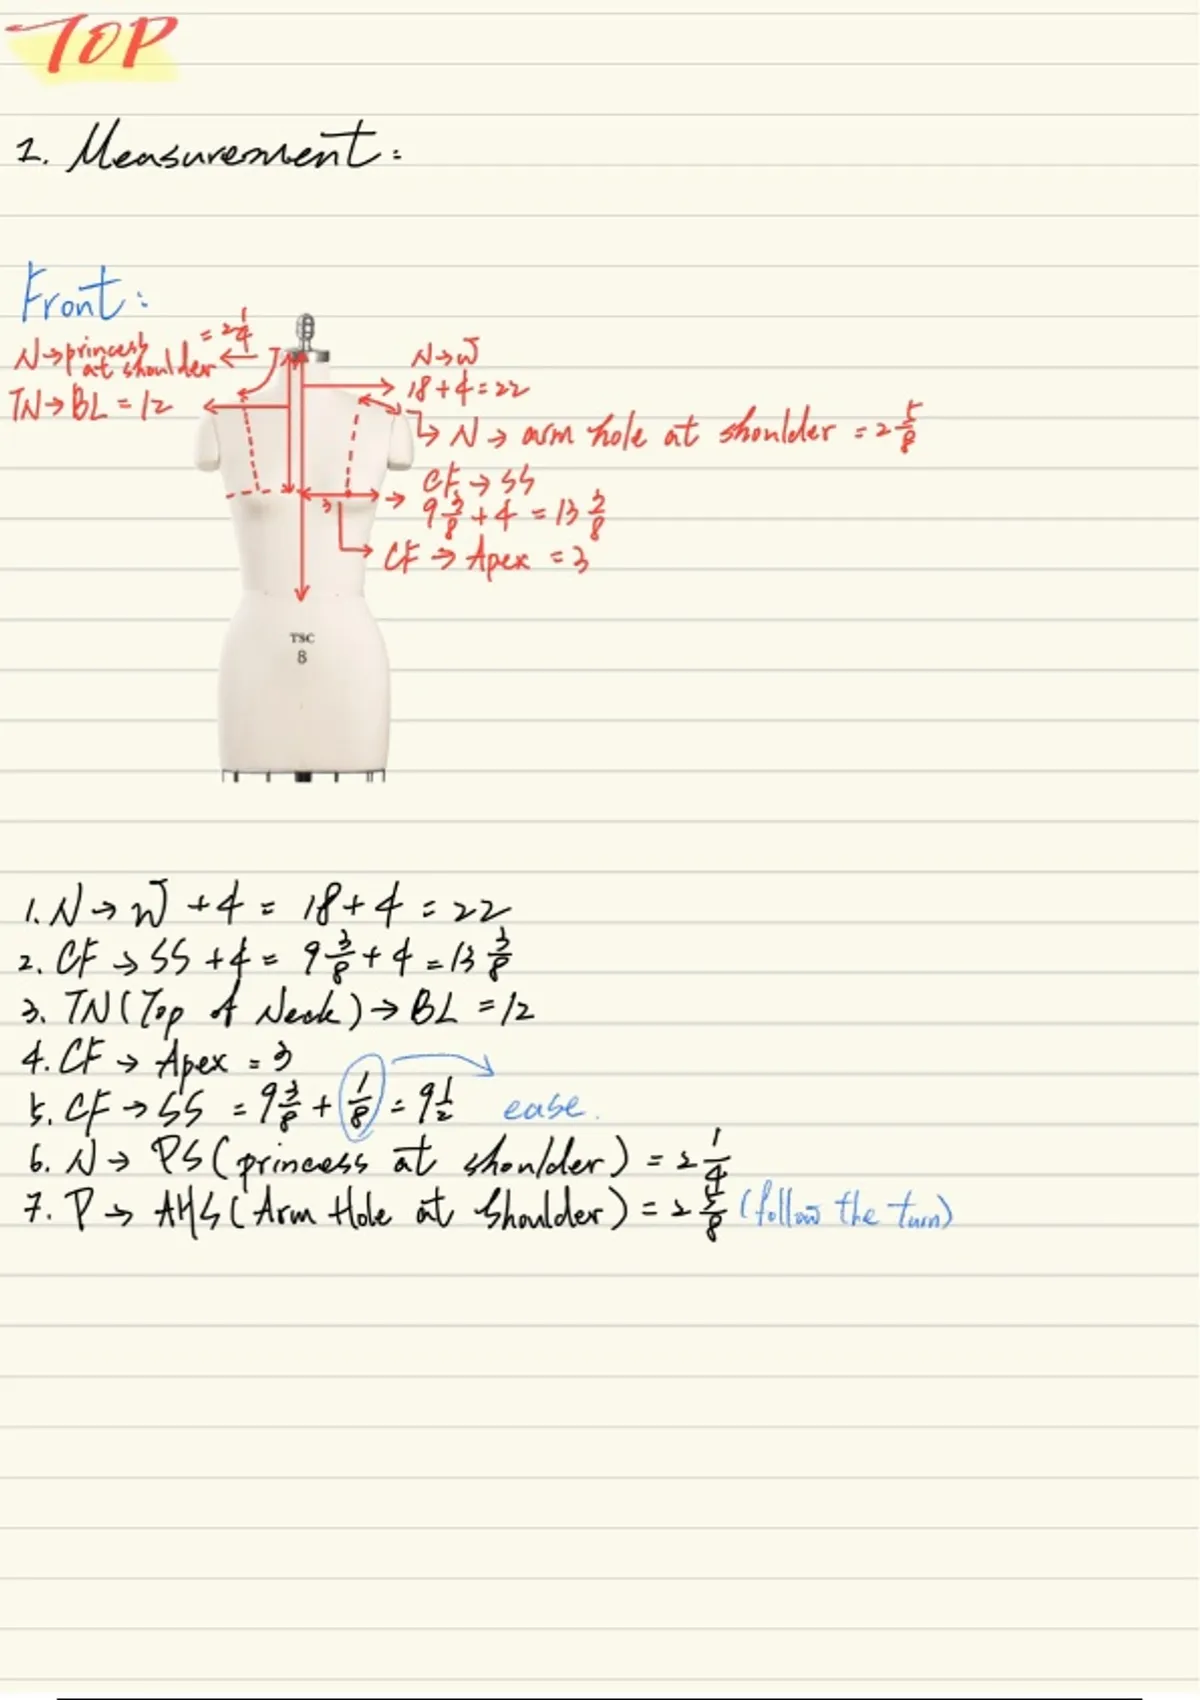 TOP
1. Measurement:
Front:
N→princess at shoulder = 2 1/4
TN→BL = 12
N→W
18+4=22
N→ arm hole at shoulder = 2 5/8
CF→SS
9 3/8 + 4 = 13 3/8
3
CF→Apex = 3
TSC
8
1. N→W +4 = 18+4 = 22
2. CF→SS +4 = 9 3/8 + 4 = 13 3/8
3. TN (Top of Neck)→BL = 12
4. CF→Apex = 3
5. CF→SS = 9 3/8 + 1/8 = 9 1/2 ease.
6. N→PS (princess at shoulder) = 2 1/4
7. P→AHS (Arm Hole at Shoulder) = 2 5/8 (follow the turn)